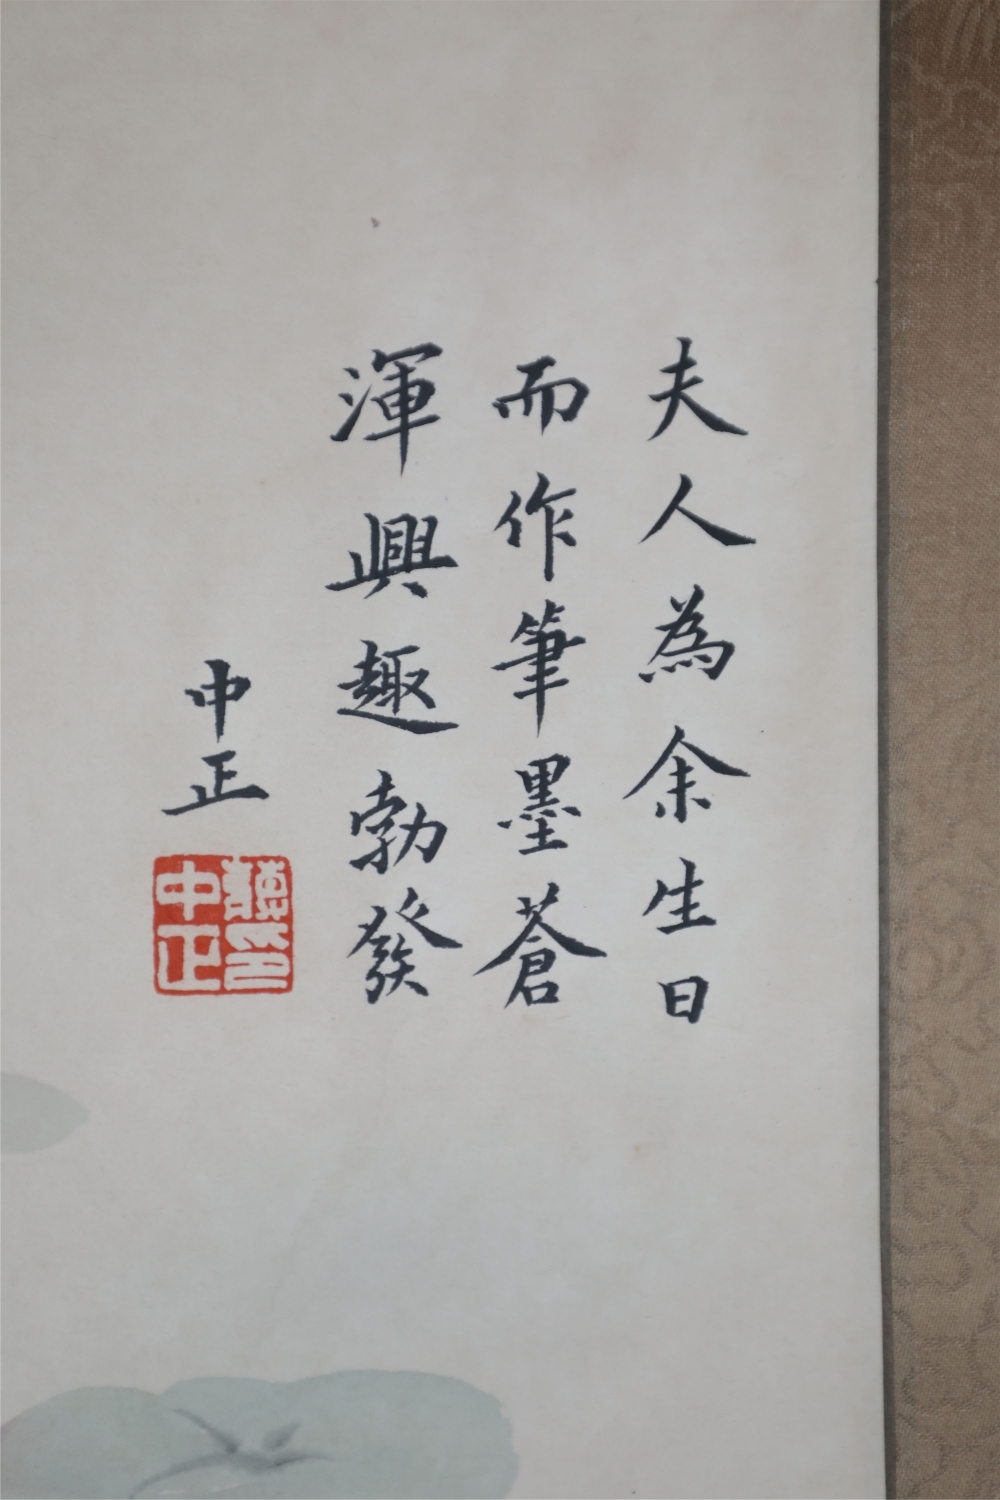 夫人為余生日
而作筆墨蒼
渾興趣勃發
中正
蔣印
中正